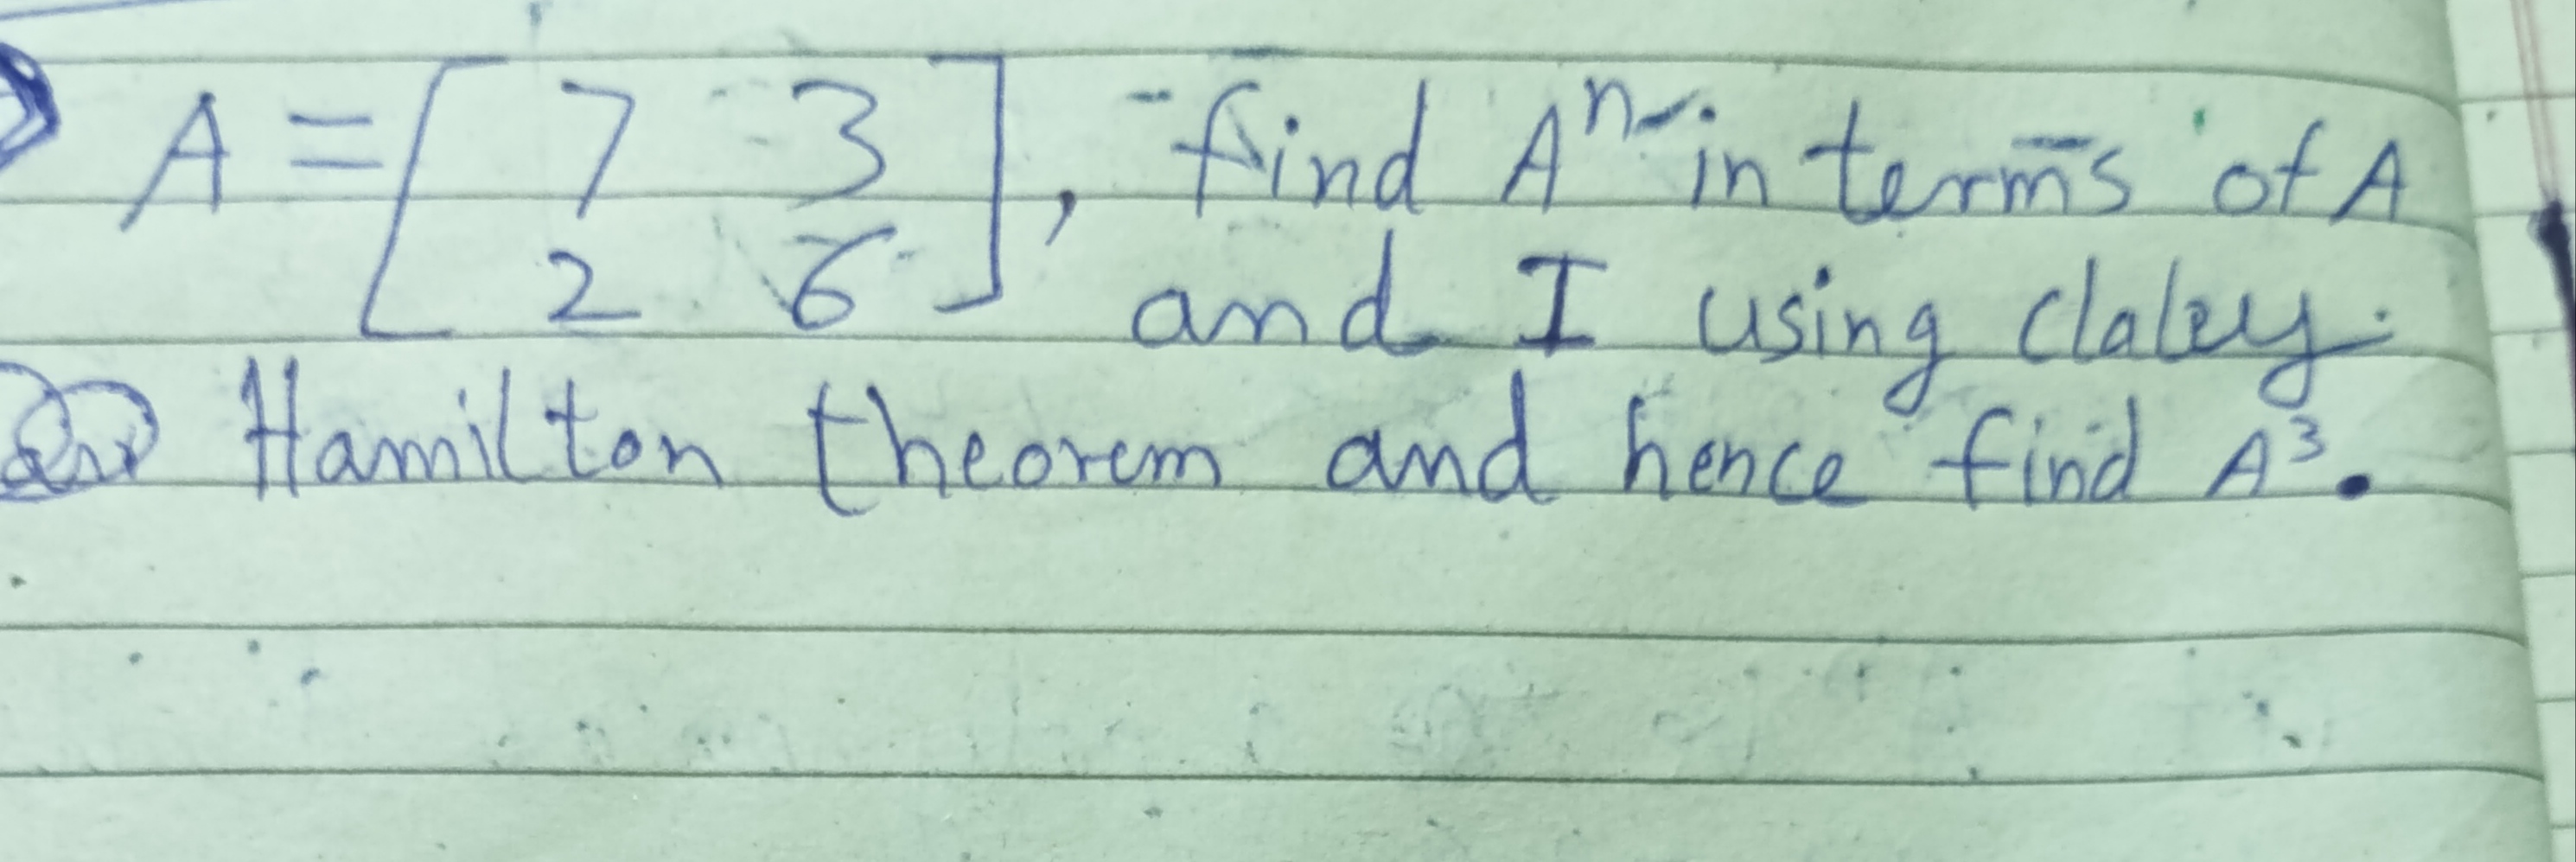 A = [ 7 3 ], find Aⁿ in terms of A
2 6 and I using claley.
Hamilton theorem and hence find A³.